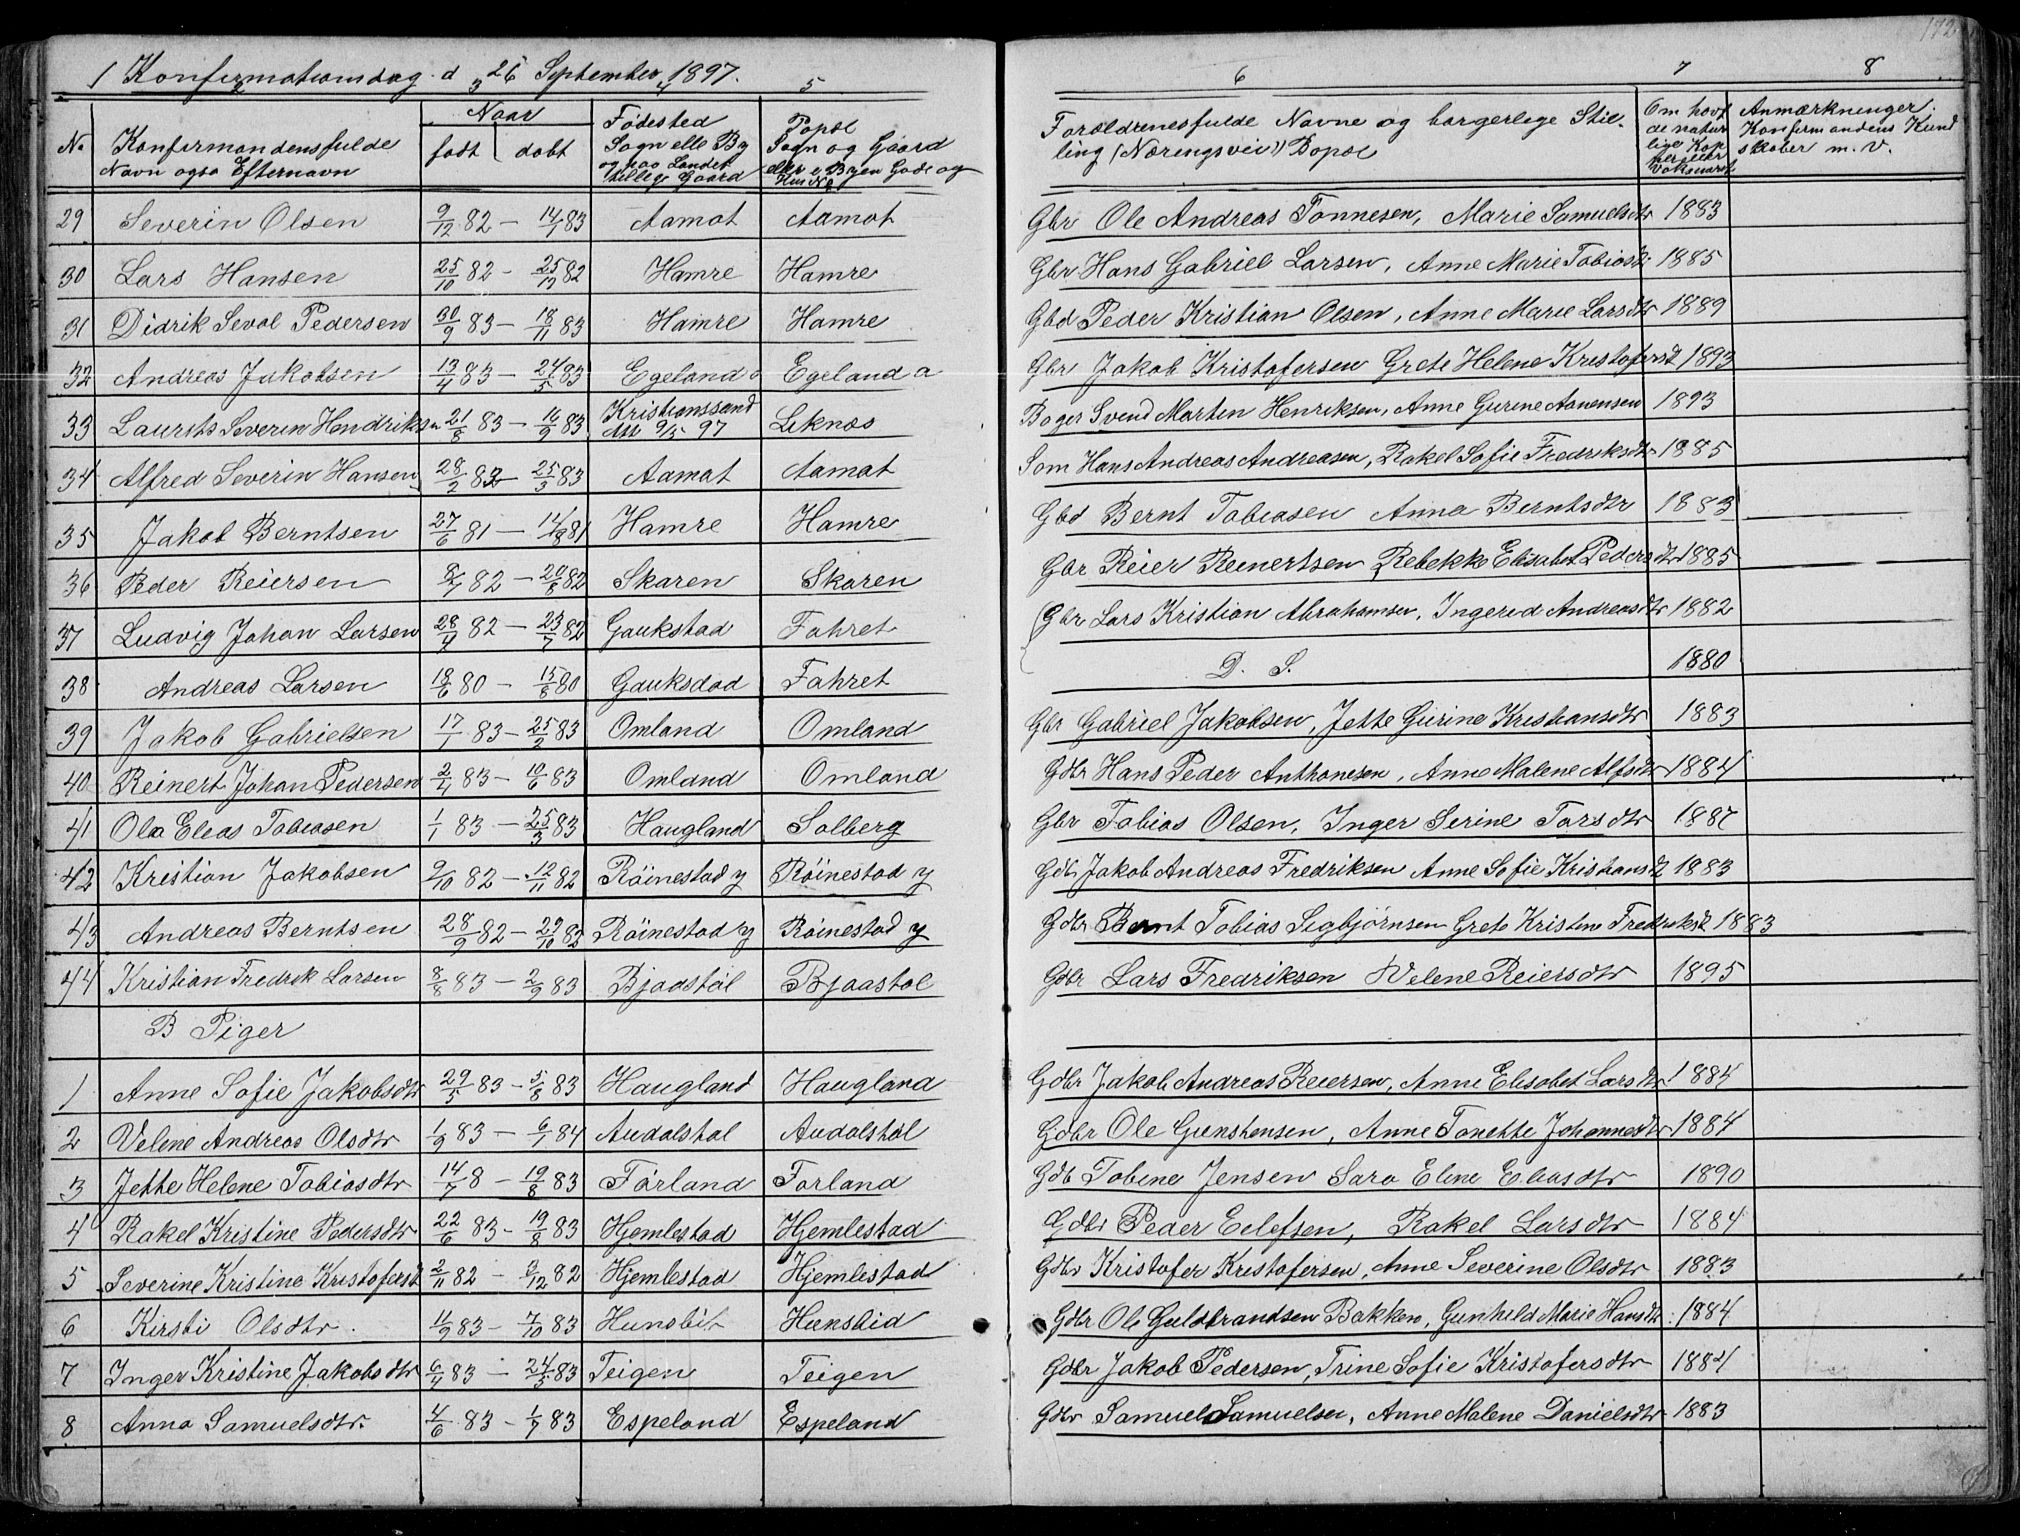 172
1 Konfirmationsdag d 26 September 1897.
2 3 4 5 6 7 8
No Konfirmandens fulde Navn ogsa Efternavn
Naar
født døbt
Fødested Sogn elle By og paa Landet tillige Gaard
Bopæl Sogn og Gaard eller i Byen Gade og Hus No
Forældrenes fulde Navne og borgerlege Stilling (Næringsvei) Bopæl
Om havt de naturlige Kopper eller Vaksineret
Anmærkninger. Konfirmandens Kundskaber m. v.
29 Severin Olsen 9/12 82 - 14/1 83 Aamot Aamot Gbr Ole Andreas Tønnesen, Marie Samuelsdtr 1883
30 Lars Hansen 25/10 82 - 25/12 82 Hamre Hamre Gbr Hans Gabriel Larsen, Anne Marie Tobiasd. 1885
31 Didrik Seval Pedersen 30/9 83 - 18/11 83 Hamre Hamre Gbd Peder Kristian Olsen, Anne Marie Larsdtr 1889
32 Andreas Jakobsen 13/4 83 - 24/5 83 Egeland a Egeland a Gbr Jakob Kristofersen Grete Helene Kristofersd 1893
33 Laurits Severin Hendriksn 21/8 83 - 16/9 83 Kristianssand 9/5 97 Leknes Bager Svend Martin Henriksen, Anne Gurine Aanensen 1893
34 Alfred Severin Hansen 28/2 83 - 25/3 83 Aamot Aamot Søm Hans Andreas Andreasen, Rakel Sofie Fredriksdtr 1885
35 Jakob Berntsen 27/6 81 - 14/8 81 Hamre Hamre Gbd Bernt Tobiasen Anna Berntsdtr 1883
36 Peder Reiersen 8/7 82 - 20/8 82 Skaren Skaren Gbr Reier Reinertsen Rebekke Elisabet Pedersdtr 1885
37 Ludvig Johan Larsen 28/4 82 - 23/7 82 Gaukstad Fahret Gbr Lars Kristian Abrahamsen, Ingered Andreasdtr 1882
38 Andreas Larsen 18/6 80 - 15/8 80 Gauksdad Fahret D. S. 1880
39 Jakob Gabrielsen 17/1 83 - 25/2 83 Omland Omland Gbr Gabriel Jakobsen, Jette Gurine Kristiansdtr 1883
40 Reinert Johan Pedersen 2/4 83 - 10/6 83 Omland Omland Gdbr Hans Peder Anthonesen, Anne Malene Alfsdtr 1884
41 Ola Elias Tobiasen 1/1 83 - 25/3 83 Haugland Solberg Gbr Tobias Olsen, Inger Serine Tarsdtr 1887
42 Kristian Jakobsen 9/10 82 - 12/11 82 Röinestad y Röinestad y Gdb Jakob Andreas Fredriksen Anne Sofie Kristiansd 1883
43 Andreas Berntsen 28/9 82 - 29/10 82 Röinestad y Röinestad y Gdbr Bernt Tobias Sigbjørnsen Grete Kristine Fredriksd 1883
44 Kristian Fredrik Larsen 8/8 83 - 2/9 83 Bjaastøl Bjaastøl Gdbr Lars Fredriksen Velene Reiersdtr 1895
B Piger
1 Anne Sofie Jakobsdtr 29/5 83 - 5/8 83 Haugland Haugland Gdbr Jakob Andreas Reiersen, Anne Elisabet Larsdtr 1884
2 Velene Andreas Olsdtr 1/9 83 - 6/1 84 Audalstøl Audalstøl Gdbr Ole Gunstensen, Anne Tonette Johannesdtr 1884
3 Jette Helene Tobiasdtr 14/7 8 - 19/8 83 Førland Førland Gdb Tobine Jensen Sara Eline Eliasdtr 1890
4 Rakel Kristine Pedersdtr 22/6 83 - 19/8 83 Hjemlestad Hjemlestad Gdbr Peder Eilefsen, Rakel Larsdtr 1884
5 Severine Kristine Kristofersd 2/11 82 - 3/12 82 Hjemlestad Hjemlestad Gdbr Kristofer Kristofersen, Anne Severine Olsdtr 1883
6 Kirsti Olsdtr. 11/9 83 - 7/10 83 Hunsbit Hunsbid Gdbr Ole Guldbrandsen Bakken, Gunhild Marie Hansdtr. 1884
7 Inger Kristine Jakobsdtr 6/4 83 - 24/5 83 Teigen Teigen Gdbr Jakob Pedersen, Trine Sofie Kristofersdtr 1884
8 Anna Samuelsdtr. 4/6 83 - 1/7 83 Espeland Espeland Gdbr Samuel Samuelsen, Anne Malene Danielsdtr 1883